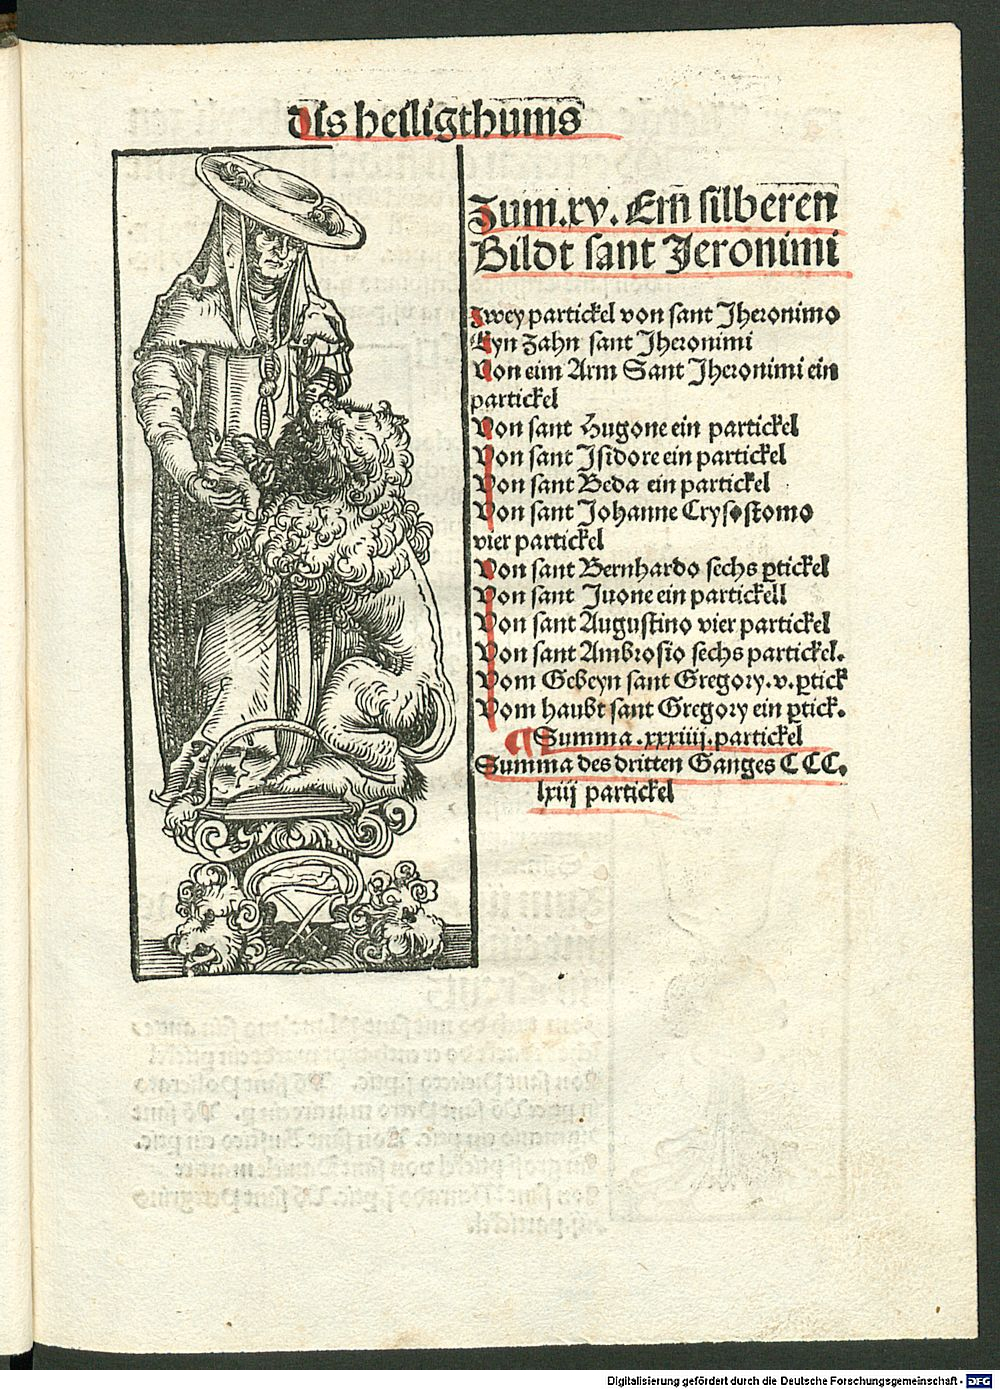 dis heiligthums
Zum .xv. Ein silberen
Bildt sant Jeronimi
Zwey partickel von sant Jheronimo
Eyn Zahn sant Jheronimi
Von eim Arm Sant Jheronimi ein
partickel
Von sant Hugone ein partickel
Von sant Isidore ein partickel
Von sant Beda ein partickel
Von sant Johanne Crysostomo
vier partickel
Von sant Bernhardo sechs ꝑtickel
Von sant Juone ein partickell
Von sant Augustino vier partickel
Von sant Ambrosio sechs partickel.
Vom Gebeyn sant Gregory .v. ꝑtick
Vom haubt sant Gregory ein ꝑtick.
¶ Summa .xxxiiij. partickel
Summa des dritten Ganges CCC.
lxiij partickel
Digitalisierung gefördert durch die Deutsche Forschungsgemeinschaft - DFG